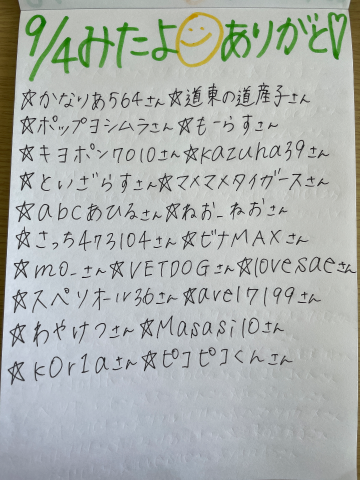 9/4みたよ ありがと♡
☆かなりあ564さん☆道東の道産子さん
☆ポップヨシムラさん☆もーらすさん
☆キヨポン7010さん☆kazuha39さん
☆といざらすさん☆マメマメタイガースさん
☆abcあひるさん☆ねお_ねおさん
☆さっち473104さん☆ビナMAXさん
☆mo_さん☆VETDOGさん☆lovesaeさん
☆スペリオール36さん☆ave17199さん
☆わやけつさん☆Masasi10さん
☆k0r1aさん☆ピコピコくんさん